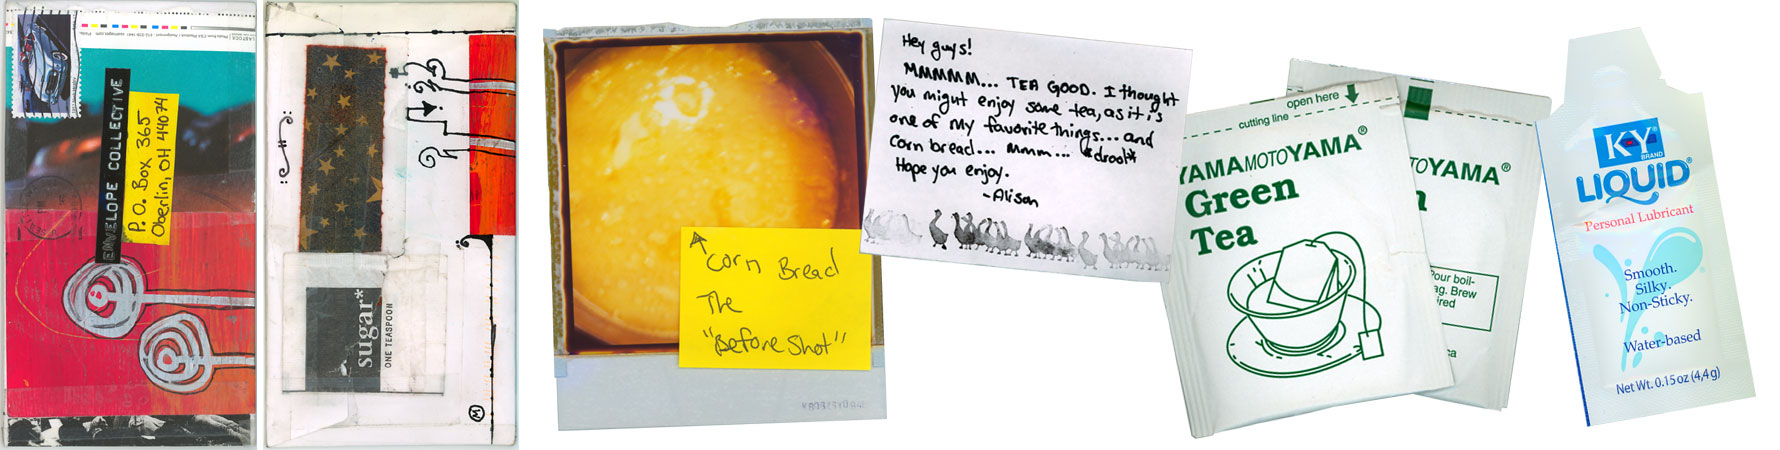 ENVELOPE COLLECTIVE
P.O. Box 365
Oberlin, OH 44074
sugar*
ONE TEASPOON
M
Corn Bread
The
"Before Shot"
Hey guys!
MMMMM... TEA GOOD. I thought
you might enjoy some tea, as it's
one of my favorite things... and
corn bread... Mmm... *drool*
Hope you enjoy.
-Alison
open here
cutting line
YAMAMOTOYAMA®
Green
Tea
TOYAMA®
n
Pour boil-
ag. Brew
ired
ca
K-Y®
BRAND
LIQUID®
Personal Lubricant
Smooth.
Silky.
Non-Sticky.
Water-based
Net Wt. 0.15 oz (4,4 g)